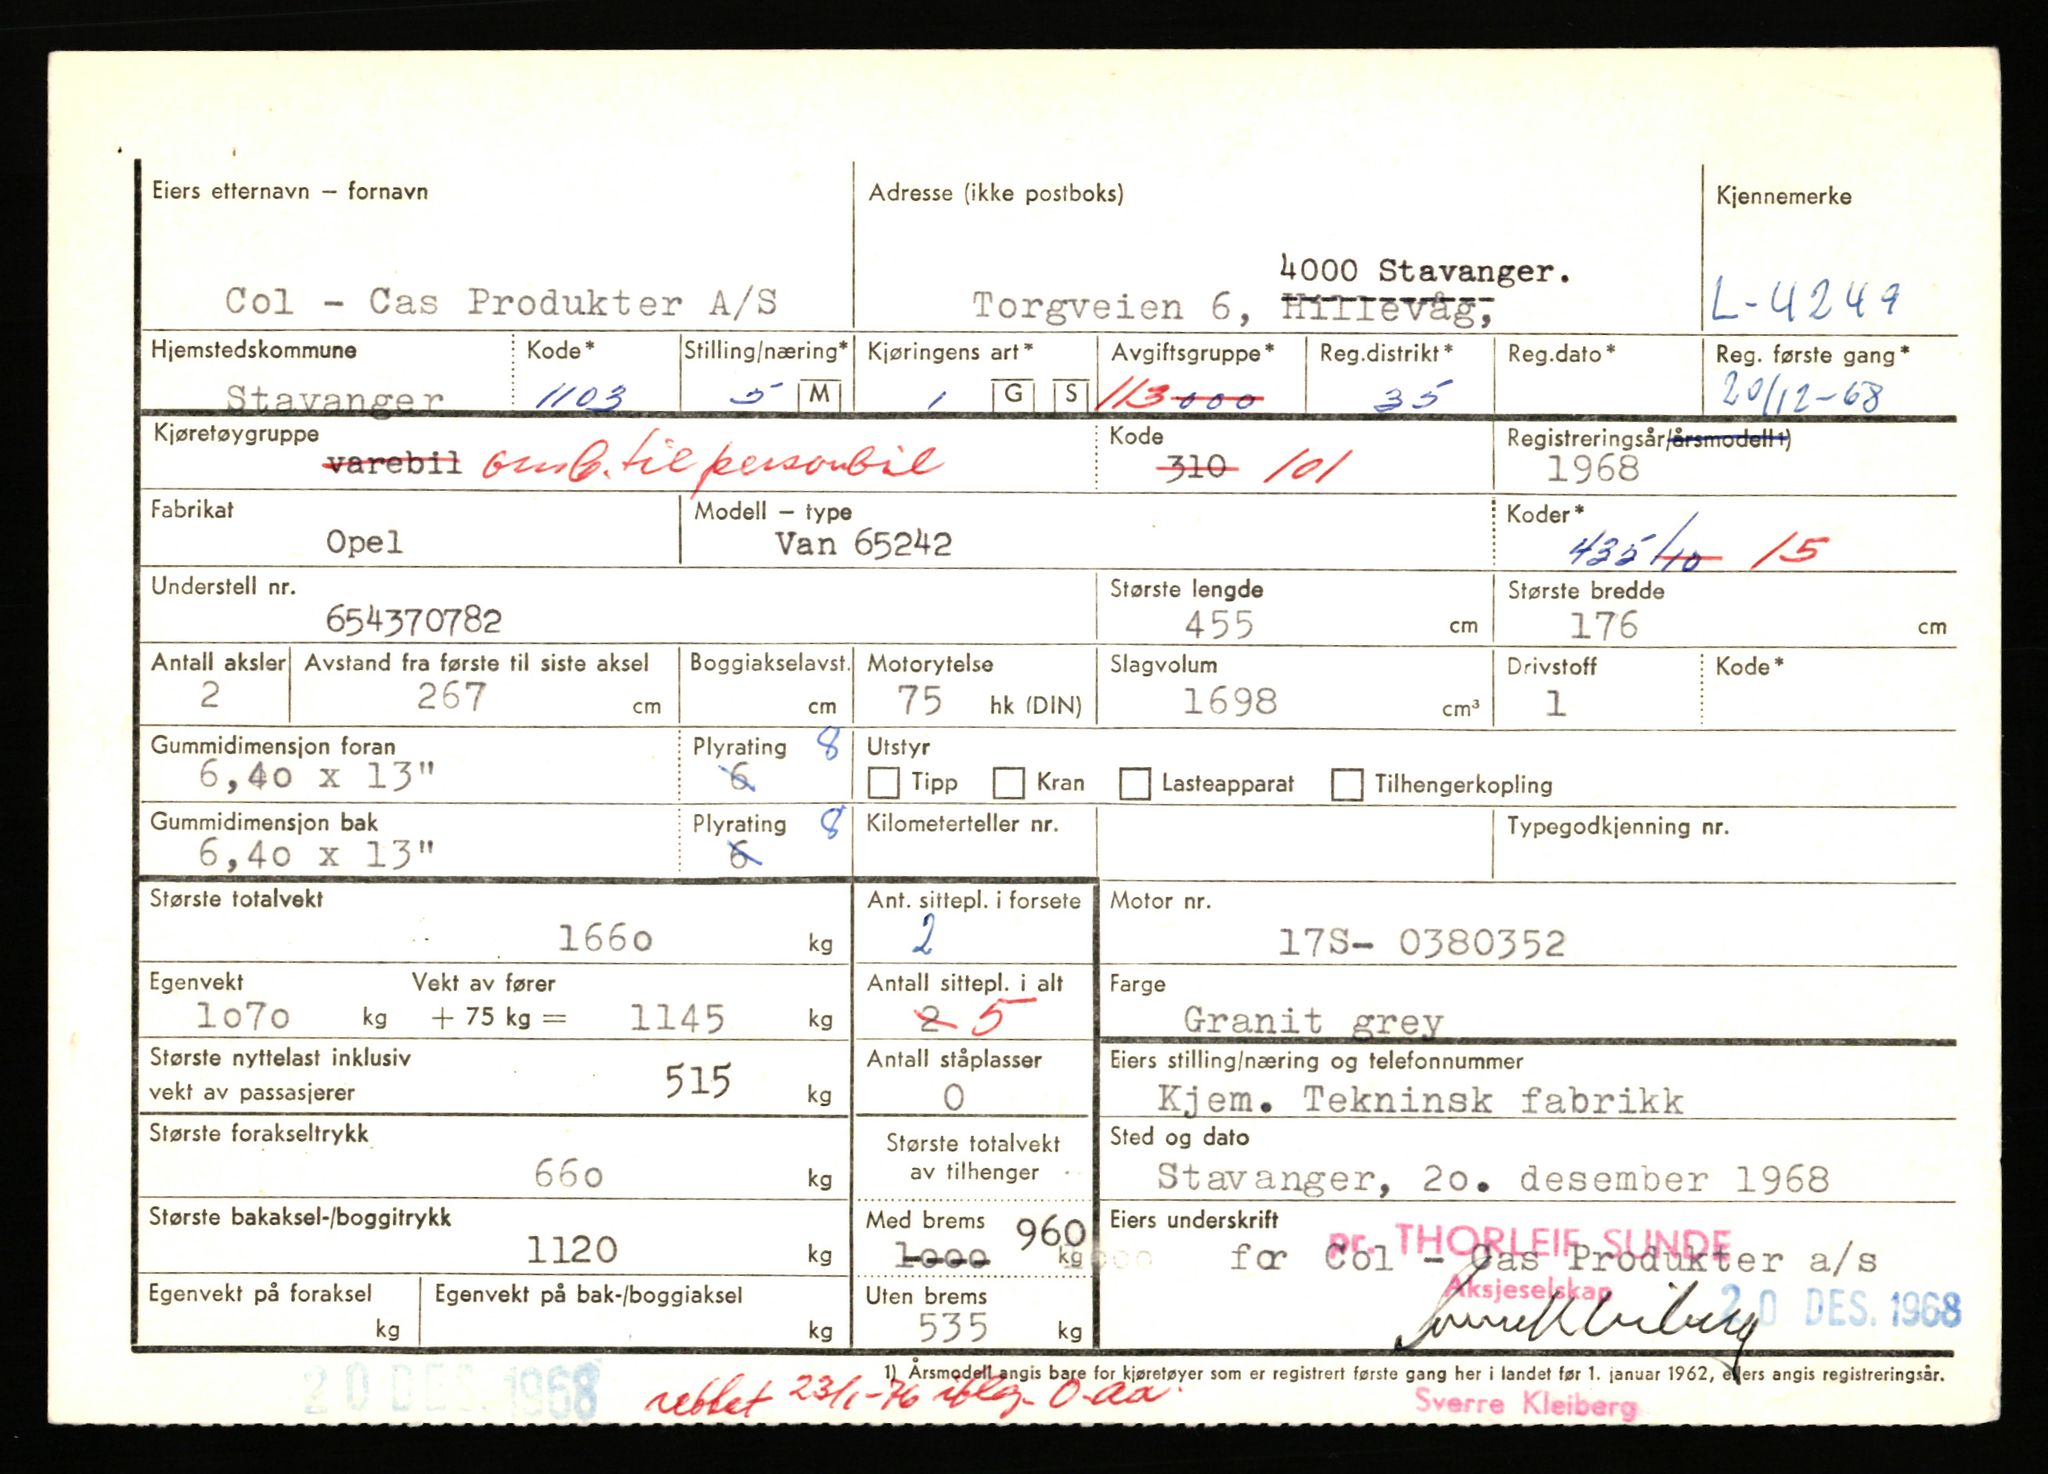 Eiers etternavn – fornavn
Adresse (ikke postboks)
Kjennemerke
Col - Cas Produkter A/S
4000 Stavanger.
Torgveien 6, Hillevåg,
L-4249
Hjemstedskommune
Kode*
Stilling/næring*
Kjøringens art*
Avgiftsgruppe*
Reg.distrikt*
Reg.dato*
Reg. første gang*
Stavanger
1103
5 M
1 G S
113 000
35
20/12-68
Kjøretøygruppe
Kode
Registreringsår/årsmodell 1)
varebil omb. til personbil
310 101
1968
Fabrikat
Modell – type
Koder*
Opel
Van 65242
435/10 15
Understell nr.
Største lengde
Største bredde
654370782
455 cm
176 cm
Antall aksler
Avstand fra første til siste aksel
Boggiakselavst.
Motorytelse
Slagvolum
Drivstoff
Kode*
2
267 cm
cm
75 hk (DIN)
1698 cm³
1
Gummidimensjon foran
Plyrating 8
Utstyr
6,40 x 13"
6
Tipp
Kran
Lasteapparat
Tilhengerkopling
Gummidimensjon bak
Plyrating 8
Kilometerteller nr.
Typegodkjenning nr.
6,40 x 13"
6
Største totalvekt
Ant. sittepl. i forsete
Motor nr.
1660 kg
2
17S- 0380352
Egenvekt
Vekt av fører
Antall sittepl. i alt
Farge
1070 kg + 75 kg = 1145 kg
2 5
Granit grey
Største nyttelast inklusiv
vekt av passasjerer
515 kg
Antall ståplasser
0
Eiers stilling/næring og telefonnummer
Kjem. Tekninsk fabrikk
Største forakseltrykk
660 kg
Største totalvekt
av tilhenger
Sted og dato
Stavanger, 20. desember 1968
Største bakaksel-/boggitrykk
1120 kg
Med brems 960
1000 kg
Eiers underskrift
pr. THORLEIF SUNDE
for Col - Cas Produkter a/s
Aksjeselskap
Sverre Kleiberg
20 DES. 1968
Egenvekt på foraksel
kg
Egenvekt på bak-/boggiaksel
kg
Uten brems
535 kg
1) Årsmodell angis bare for kjøretøyer som er registrert første gang her i landet før 1. januar 1962, ellers angis registreringsår.
20 DES. 1968
rettet 23/1-76
Sverre Kleiberg